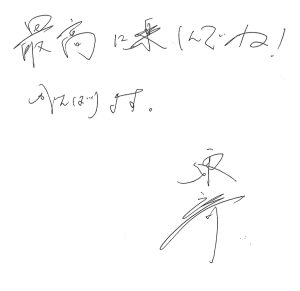 最高に楽しんでね!
がんばります。